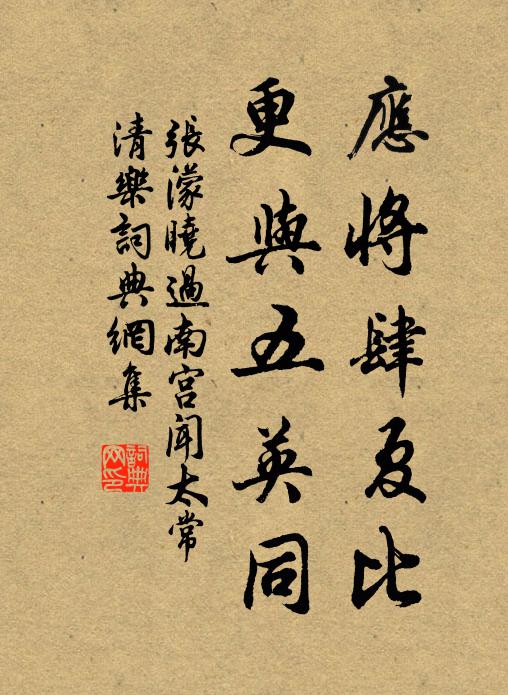 應將肆夏比
更與五英同
張濛曉過南宮聞太常
清樂詞典網集
詞典網印